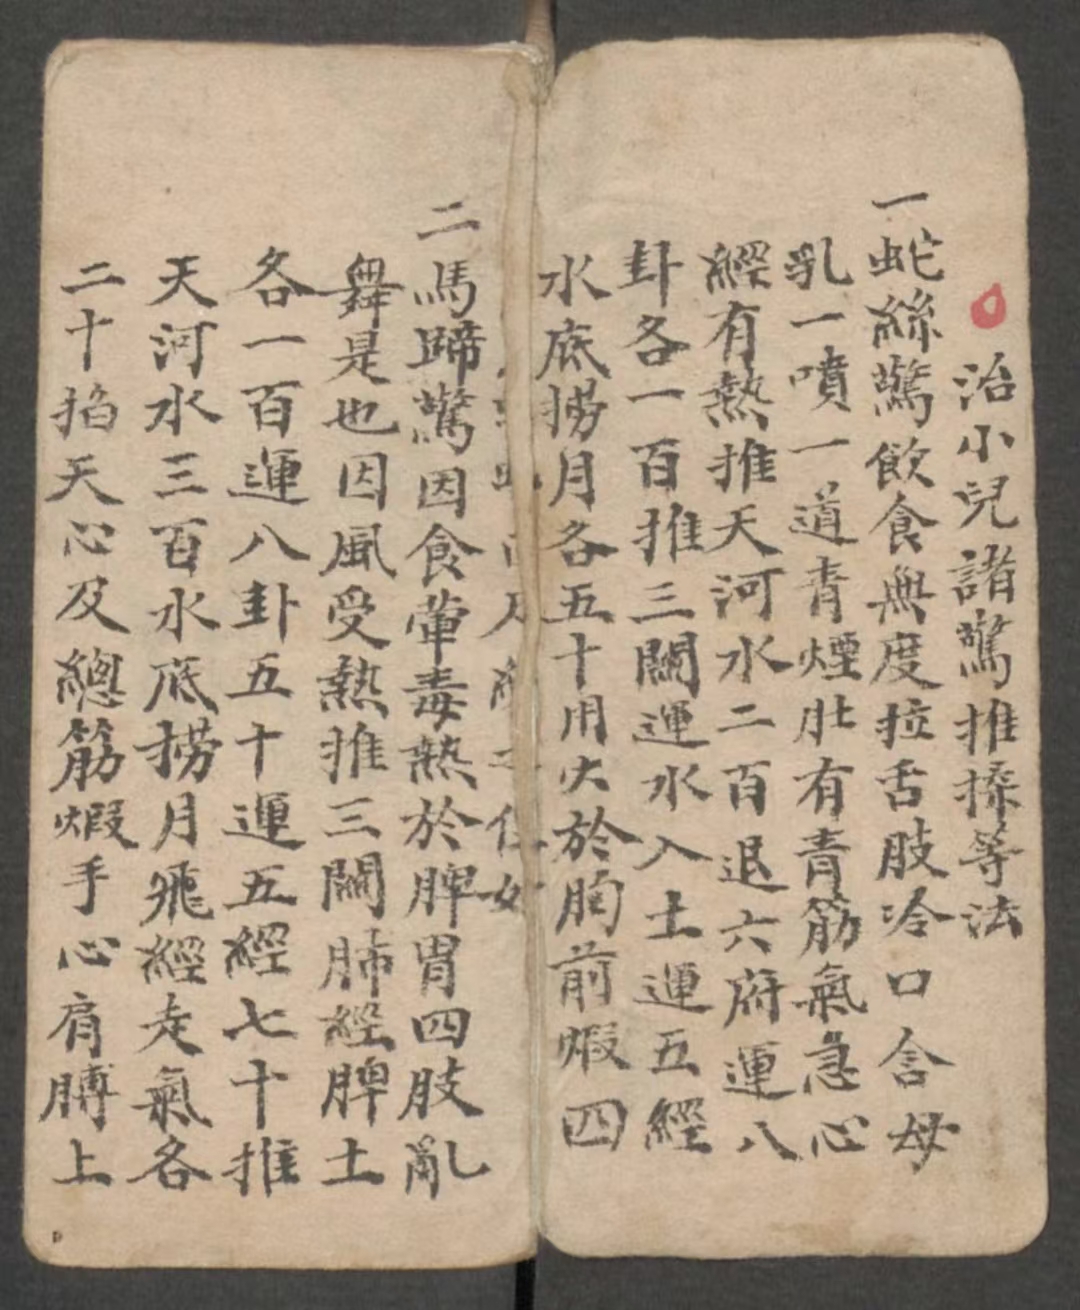 治小兒諸驚推揉等法
一蛇絲驚飲食無度拉舌肢冷口含母
乳一噴一道青煙肚有青筋氣急心
經有熱推天河水二百退六府運八
卦各一百推三關運水入土運五經
水底撈月各五十用火於胸前煆四
二馬蹄驚因食葷毒熱於脾胃四肢亂
舞是也因風受熱推三關肺經脾土
各一百運八卦五十運五經七十推
天河水三百水底撈月飛經走氣各
二十掐天心及總筋煆手心肩膊上